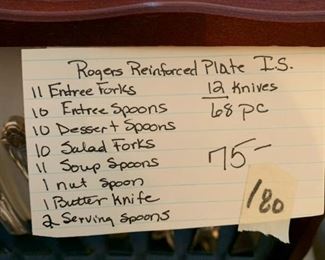 Rogers Reinforced Plate I.S.
11 Entree Forks
10 Entree Spoons
10 Dessert Spoons
10 Salad Forks
11 Soup Spoons
1 nut spoon
1 Butter knife
2 Serving spoons
12 Knives
68 pc
75-
180